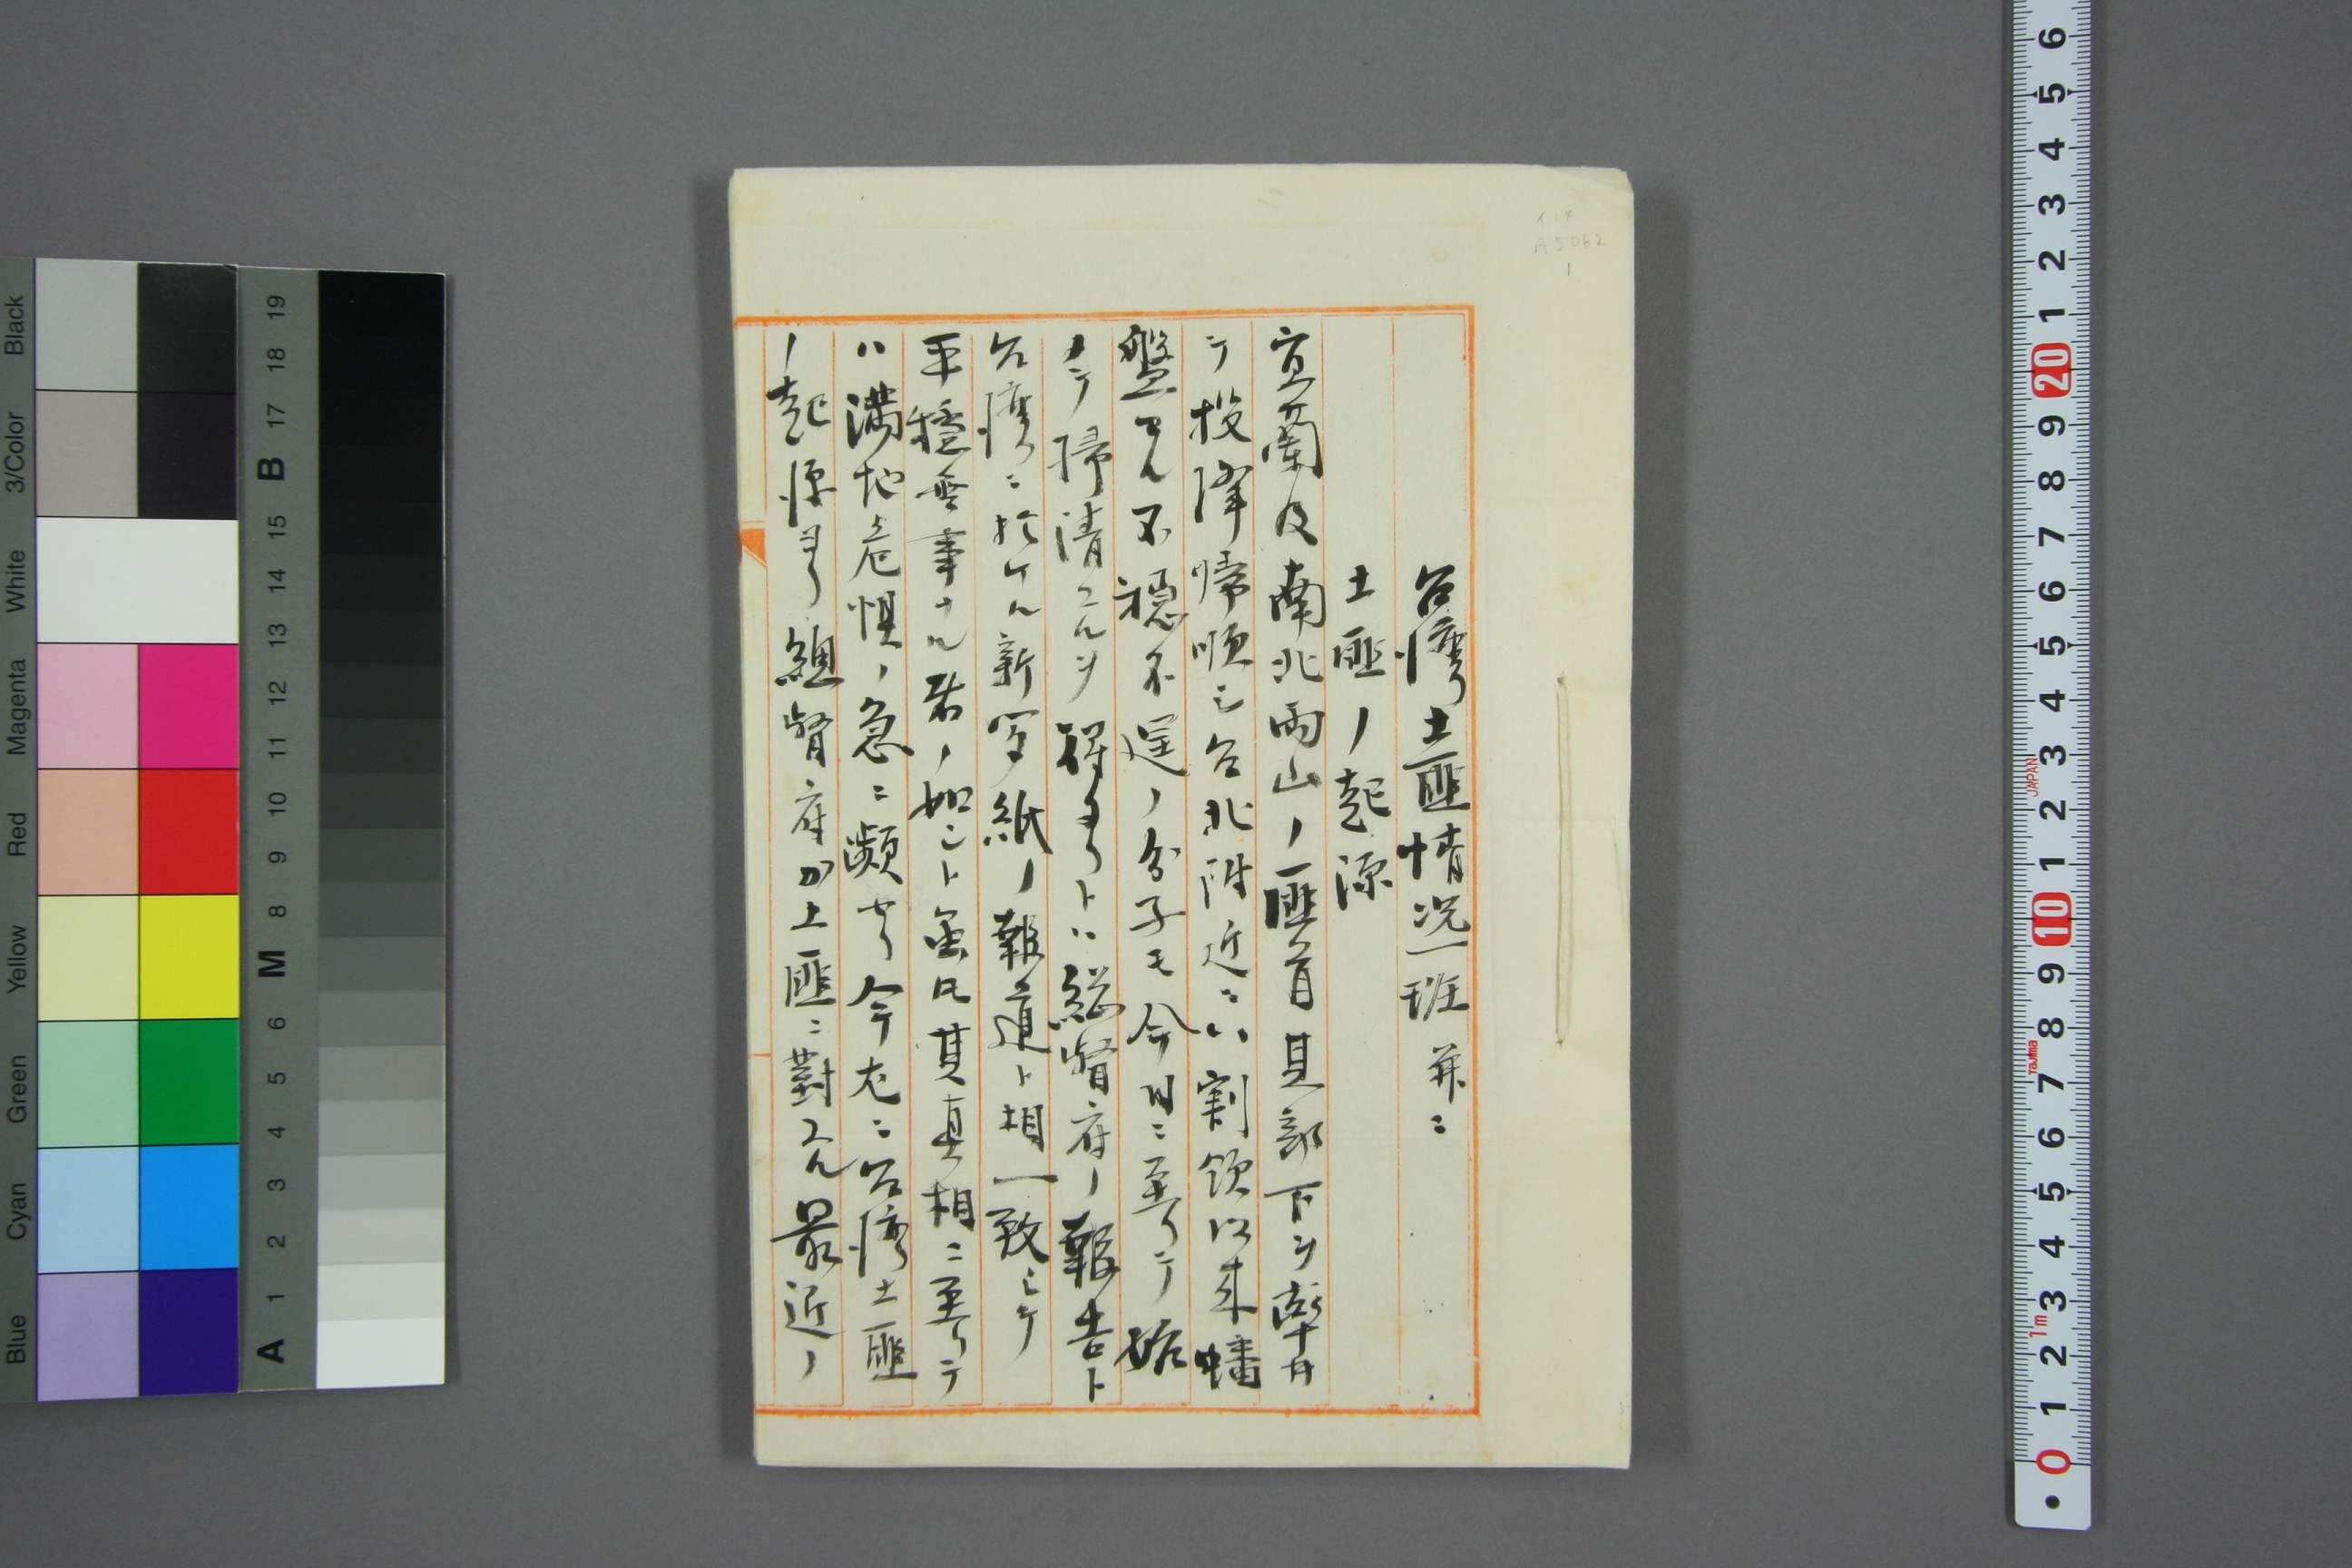 台湾土匪情況一班 并ニ
土匪ノ起源
宜蘭及南北両山ノ匪首其部下ヲ率井
テ投降帰順シ台北附近ニハ割領以来蟠
盤セル不穏不逞ノ分子モ今日ニ至リテ始
メテ掃清スルヲ得タリトハ総督府ノ報告ト
台湾ニ於ケル新聞紙ノ報道ト相一致シテ
平穏無事ナル者ノ如シト雖トモ其真相ニ至リテ
ハ満地危惧ノ急ニ瀕セリ今左ニ台湾土匪
ノ起源ヨリ總督府カ土匪ニ對スル最近ノ
イ14
A5062
1
Black
3/Color
White
Magenta
Red
Yellow
Green
Cyan
Blue
19
18
17
B
15
14
13
12
11
10
9
8
M
6
5
4
3
2
1
A
6
5
4
3
2
1
20
9
8
7
6
5
4
3
2
1
10
9
8
7
6
5
4
3
2
1
0
JAPAN
Tajima
1m